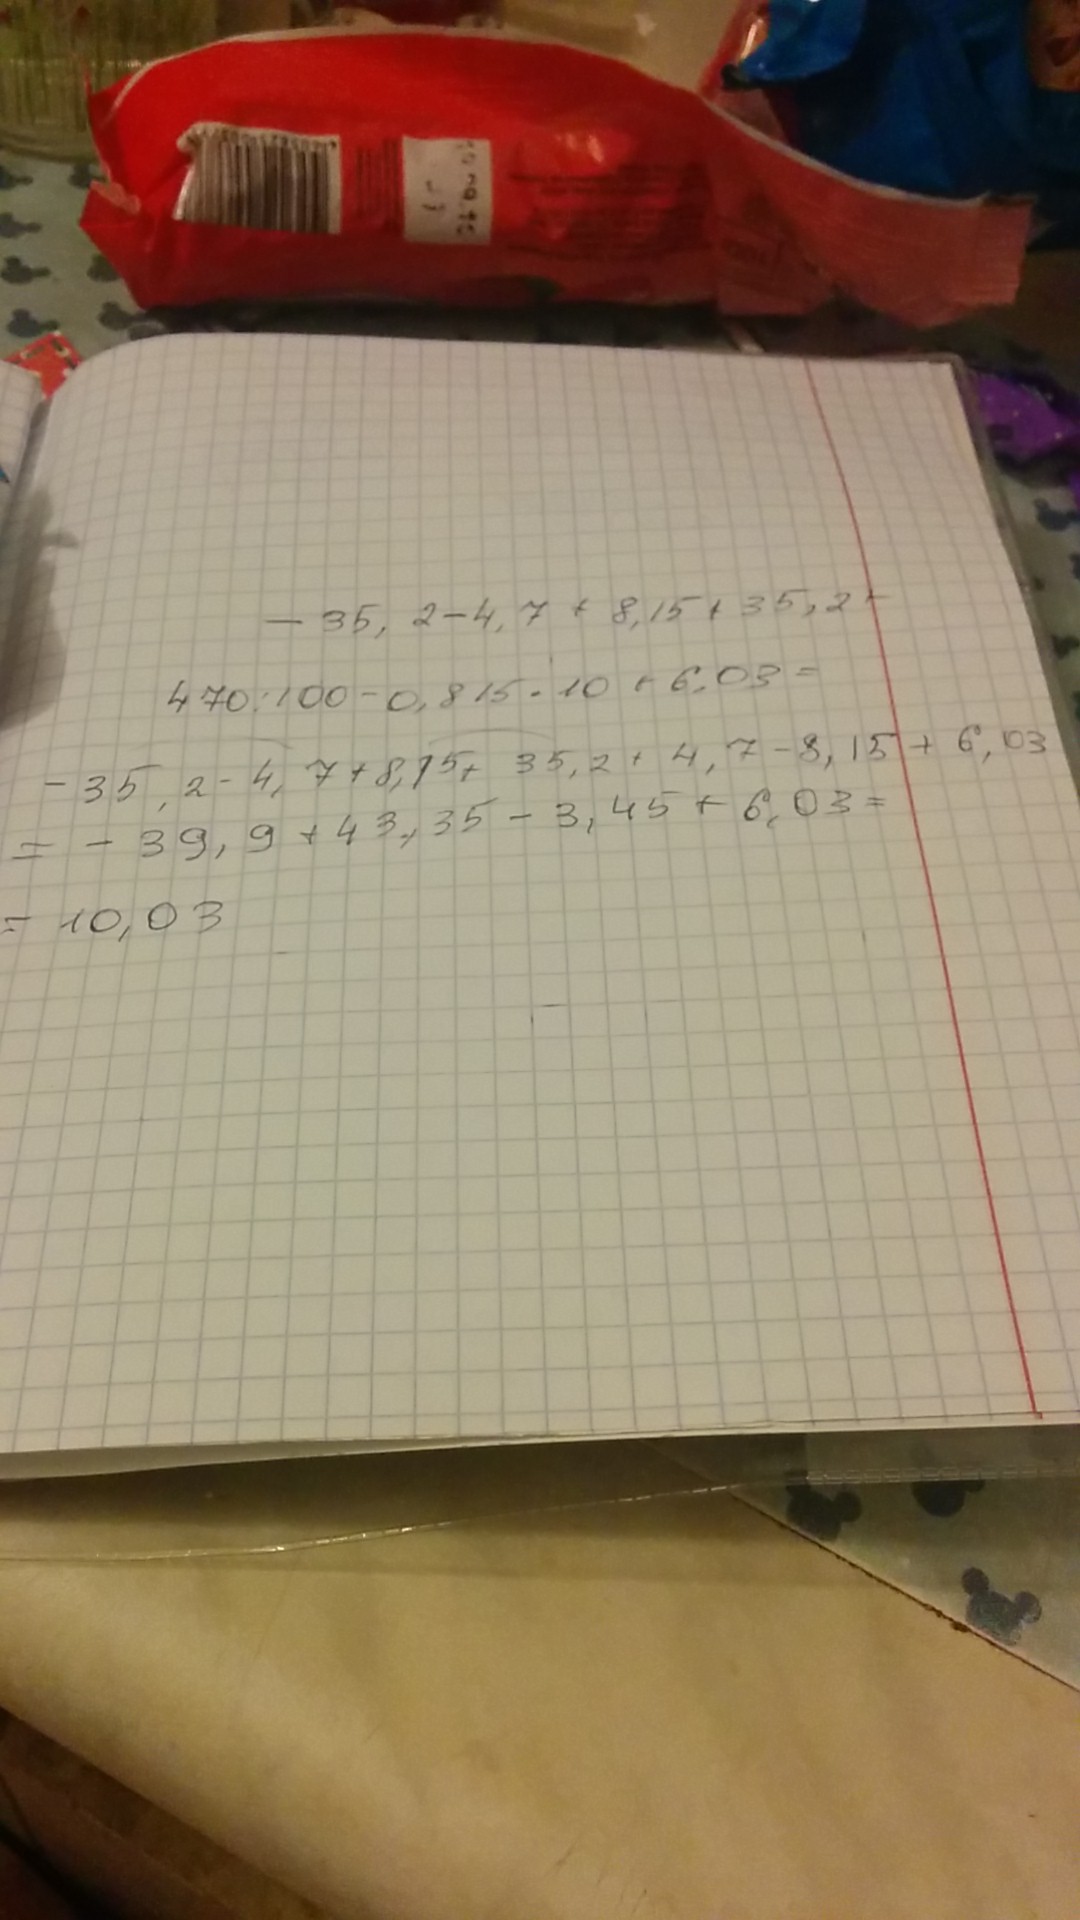 - 35,2-4,7 + 8,15+35,2+
470:100-0,815·10+6,03=
-35,2-4,7+8,15+35,2+4,7-8,15+6,03
= -39,9+43,35-3,45+6,03=
= 10,03